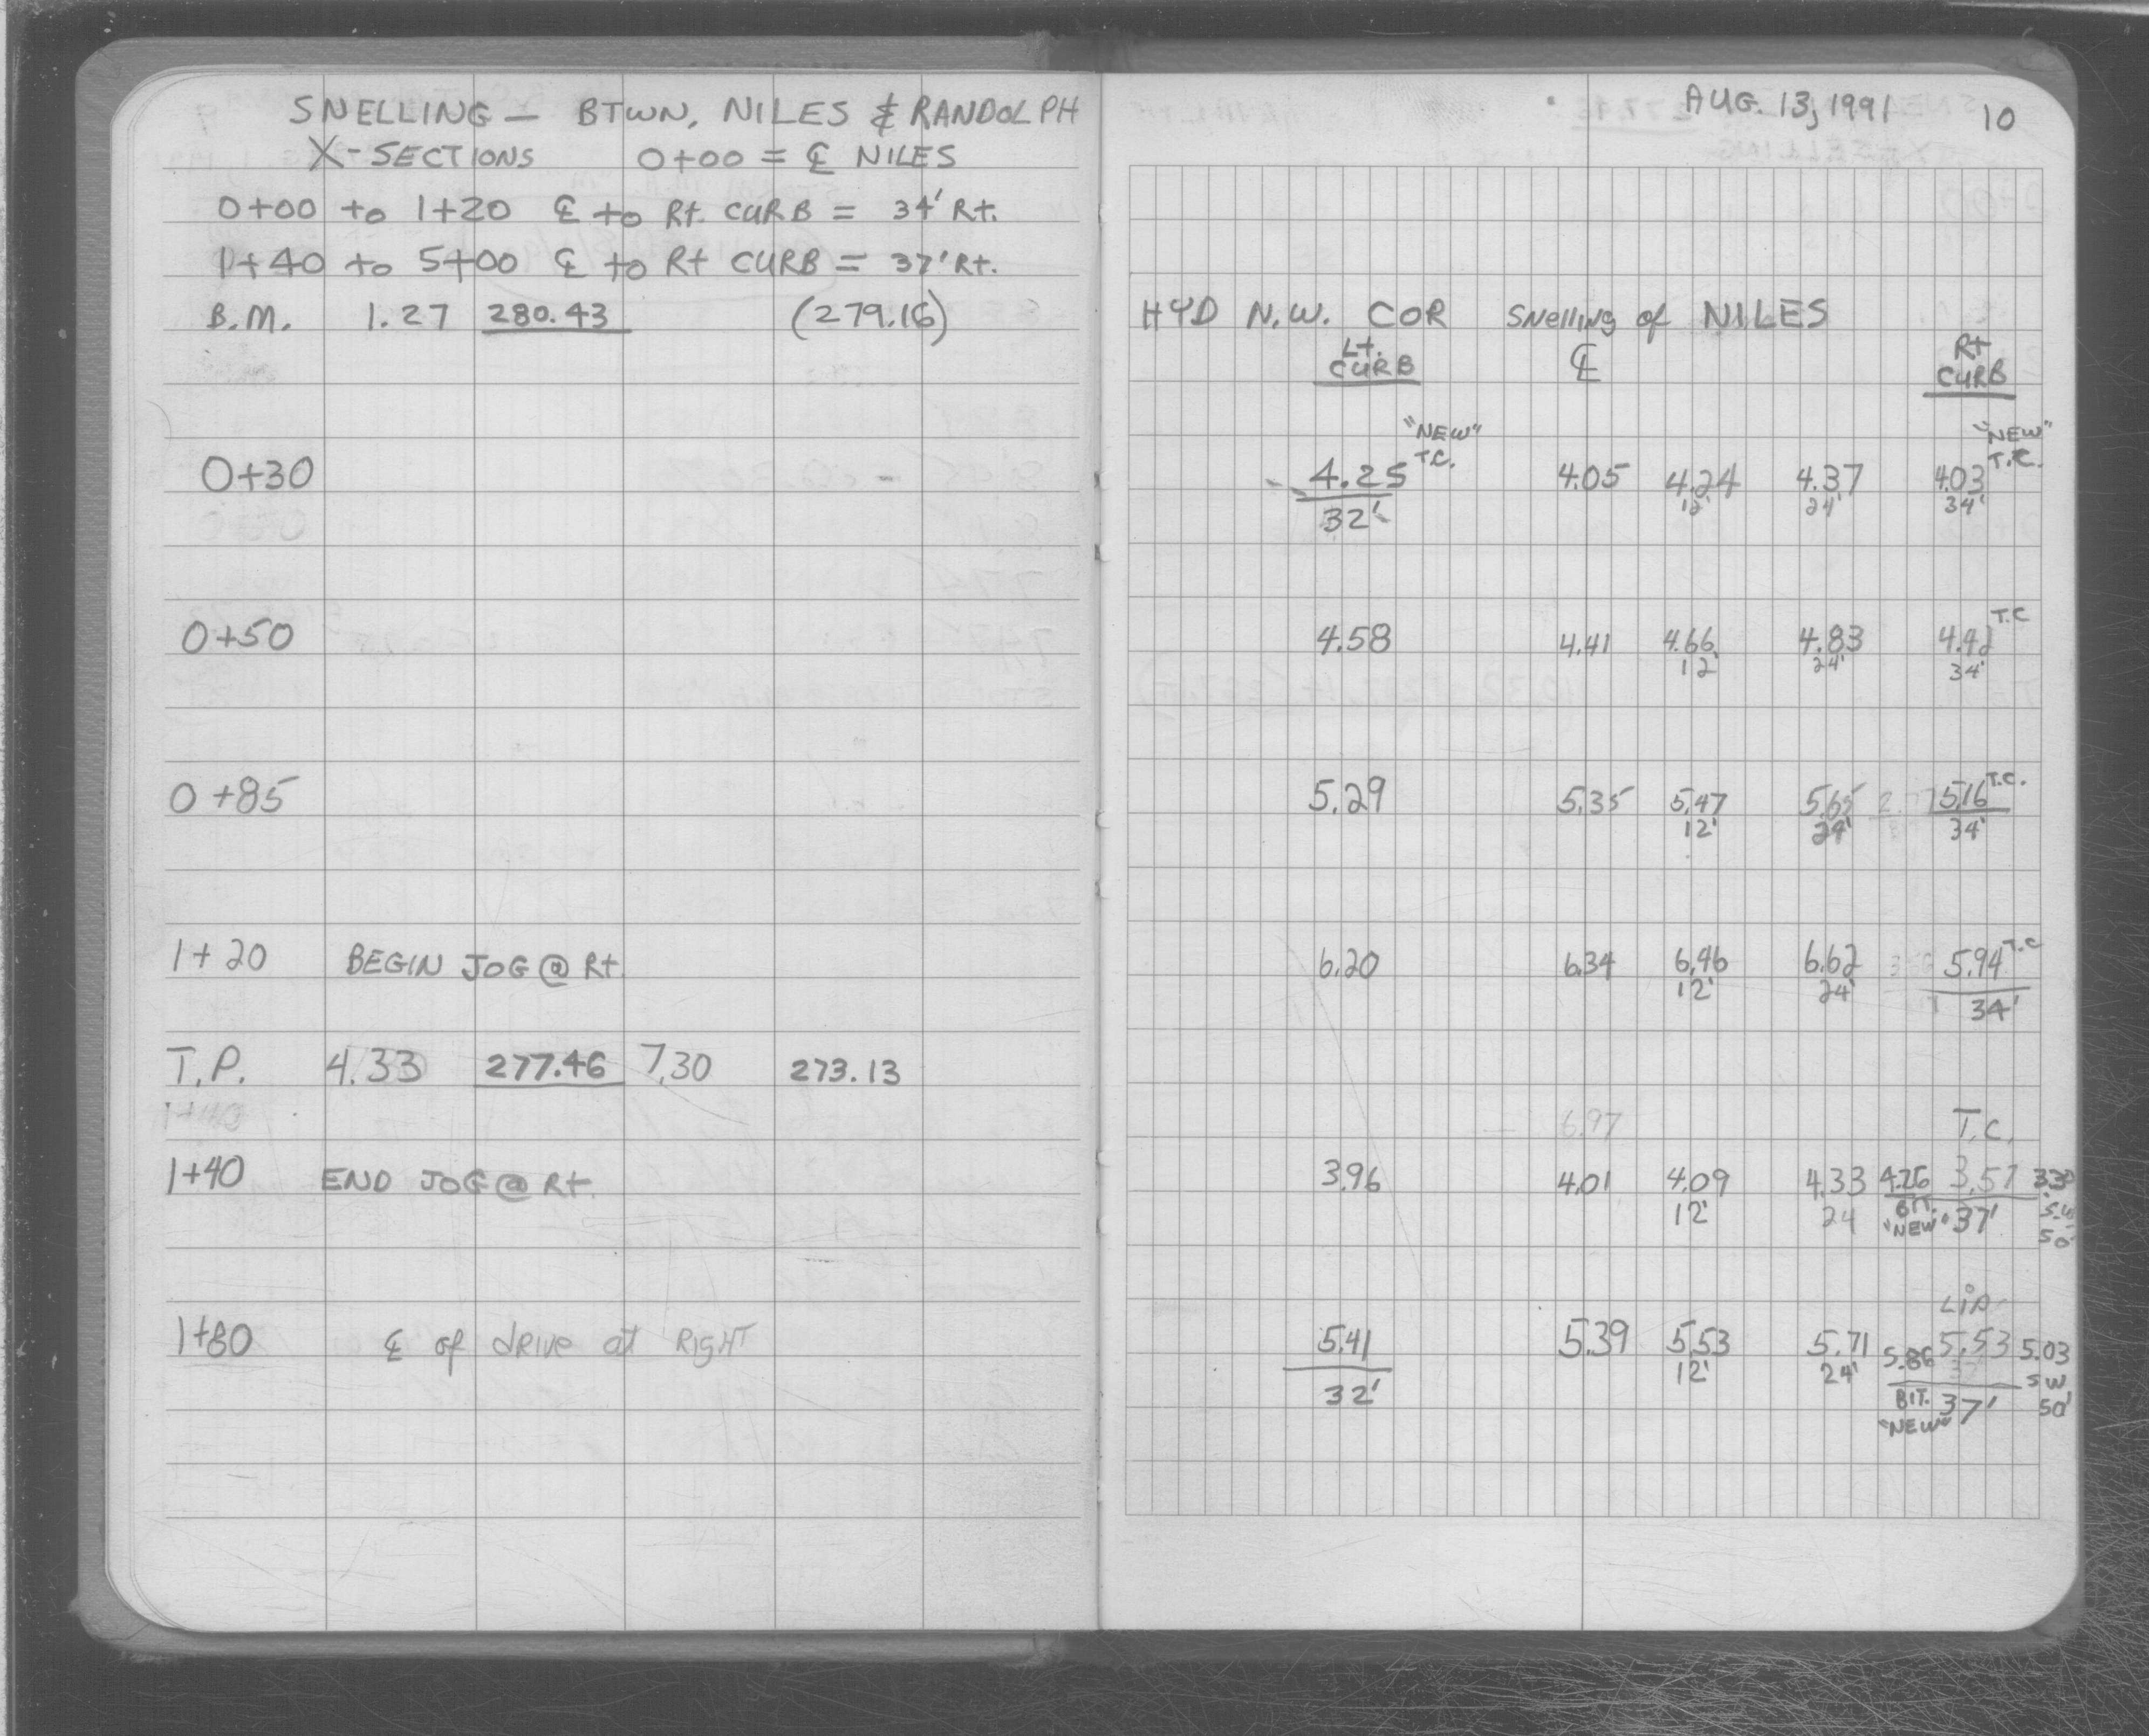 SNELLING — BTWN. NILES & RANDOLPH
X-SECTIONS 0+00 = ℄ NILES
0+00 to 1+20 ℄ to Rt. CURB = 34' Rt.
1+40 to 5+00 ℄ to Rt CURB = 37' Rt.
B.M. 1.27 280.43 (279.16)
0+30
0+50
0+85
1+20 BEGIN JOG @ Rt.
T.P. 4.33 277.46 7.30 273.13
1+40
1+40 END JOG @ Rt.
1+80 ℄ of drive at RIGHT
AUG. 13, 1991 10
HYD N.W. COR Snelling of NILES
Lt. CURB ℄ Rt CURB
"NEW" "NEW"
T.C. T.C.
4.25 4.05 4.24 4.37 4.03
32' 12' 24' 34'
T.C
4.58 4.41 4.66 4.83 4.42
12' 24' 34'
T.C.
5.29 5.35 5.47 5.65 5.16
12' 24' 34'
T.C
6.20 6.34 6.46 6.62 5.94
12' 24' 34'
6.97
T.C.
3.96 4.01 4.09 4.33 3.57
12' 24 BIT. "NEW" 37' S.W 50'
LIP
5.41 5.39 5.53 5.71 5.86 5.53 5.03
32' 12' 24' BIT. "NEW" 37' SW 50'